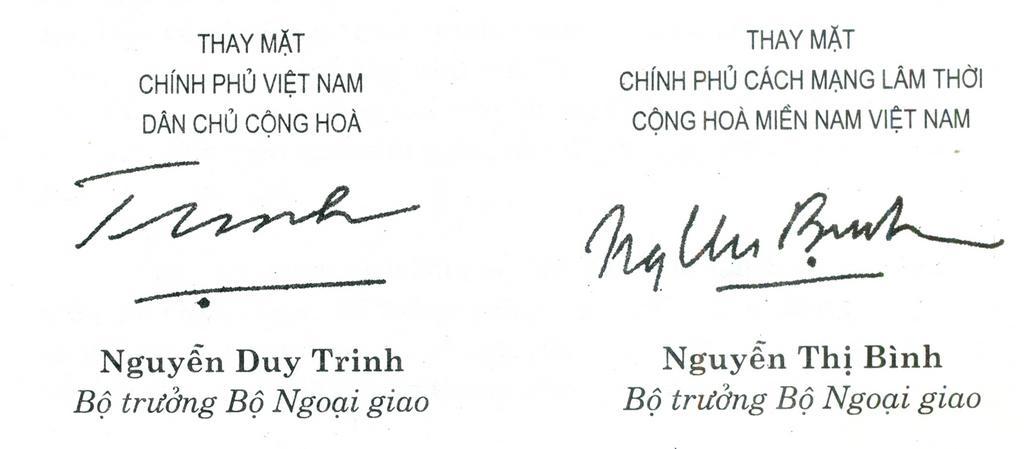 THAY MẶT
CHÍNH PHỦ VIỆT NAM
DÂN CHỦ CỘNG HOÀ
Trinh
Nguyễn Duy Trinh
Bộ trưởng Bộ Ngoại giao
THAY MẶT
CHÍNH PHỦ CÁCH MẠNG LÂM THỜI
CỘNG HOÀ MIỀN NAM VIỆT NAM
Ng Thi Binh
Nguyễn Thị Bình
Bộ trưởng Bộ Ngoại giao